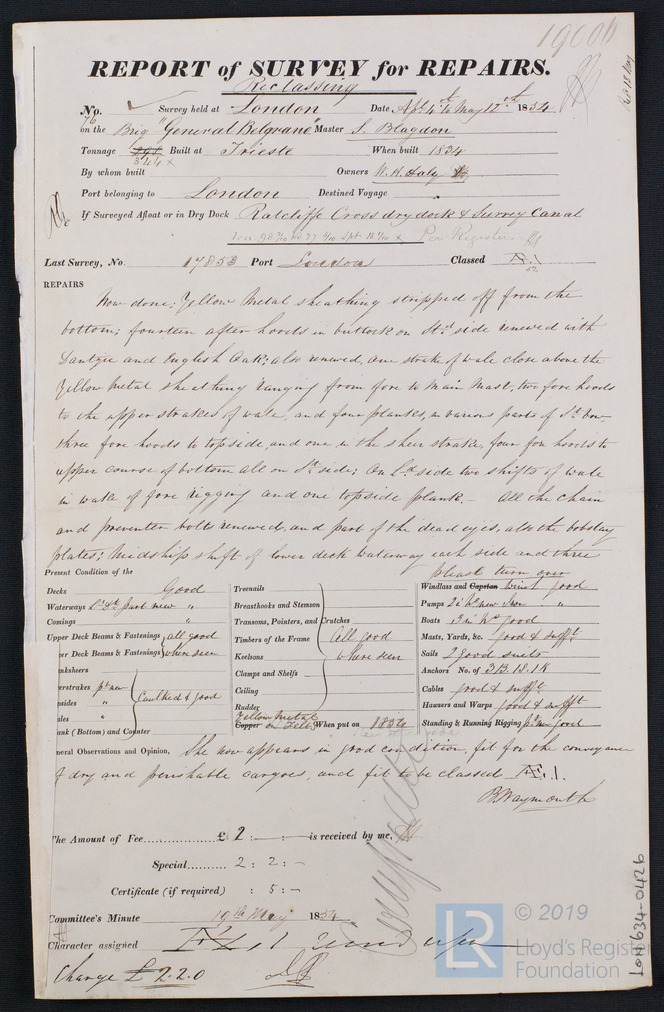 19006
REPORT of SURVEY for REPAIRS.
Reclassing
No. 76 Survey held at London Date Apl 4th to May 12th 1854
on the Brig "General Belgrano" Master S. Blagdon
Tonnage 344 Built at Trieste When built 1834
By whom built Owners W. H. Daly
Port belonging to London Destined Voyage
If Surveyed Afloat or in Dry Dock Ratcliffe Cross dry dock & Surrey Canal
Last Survey, No. 17853 Port London Classed Æ.1
REPAIRS
Now done; Yellow Metal sheathing stripped off from the
bottom; fourteen after hoods in buttock on Std side renewed with
Dantzic and English Oak; also renewed, one strake of wale close above the
Yellow Metal sheathing ranging from fore to Main Mast, two fore hoods
to the upper strakes of wale, and four planks, in various parts of Sd bow
three fore hoods to topside, and one in the sheer strake, four fore hoods to
upper course of bottom all on Sd side; On Ld side two shifts of wale
in wake of fore rigging and one topside plank. - All the chain
and preventer bolts renewed, and part of the dead eyes, also the bobstay
plates; Midship shift of lower deck waterway each side and three
please turn over
Present Condition of the
Decks Good
Waterways part new "
Comings "
Upper Deck Beams & Fastenings all good
er Deck Beams & Fastenings where seen
nksheers
erstrakes pt new
psides " Caulked & good
ales "
ank (Bottom) and Counter
Treenails
Breasthooks and Stemson
Transoms, Pointers, and Crutches
Timbers of the Frame All good
Keelsons where seen
Clamps and Shelfs
Ceiling
Rudder
Yellow Metal
Copper on Felt When put on 1854
Windlass and Capstan Winch good
Pumps 2 in No new Iron "
Boats 3 in No good
Masts, Yards, &c. good & sufft
Sails 2 good suits
Anchors No. of 3 B. 1 S. 1 K
Cables good & sufft
Hausers and Warps good & sufft
Standing & Running Rigging pt new good
neral Observations and Opinion, She now appears in good condition, fit for the conveyance
of dry and perishable cargoes, and fit to be classed Æ.1.
B. Waymouth
The Amount of Fee £ 2 : - : - is received by me,
Special 2 : 2 : -
Certificate (if required) : 5 : -
Committee's Minute 19th May 1854
Character assigned Æ 1
Charge £ 2.2.0
LR
© 2019
Lloyd's Register
Foundation
LON 634-0426